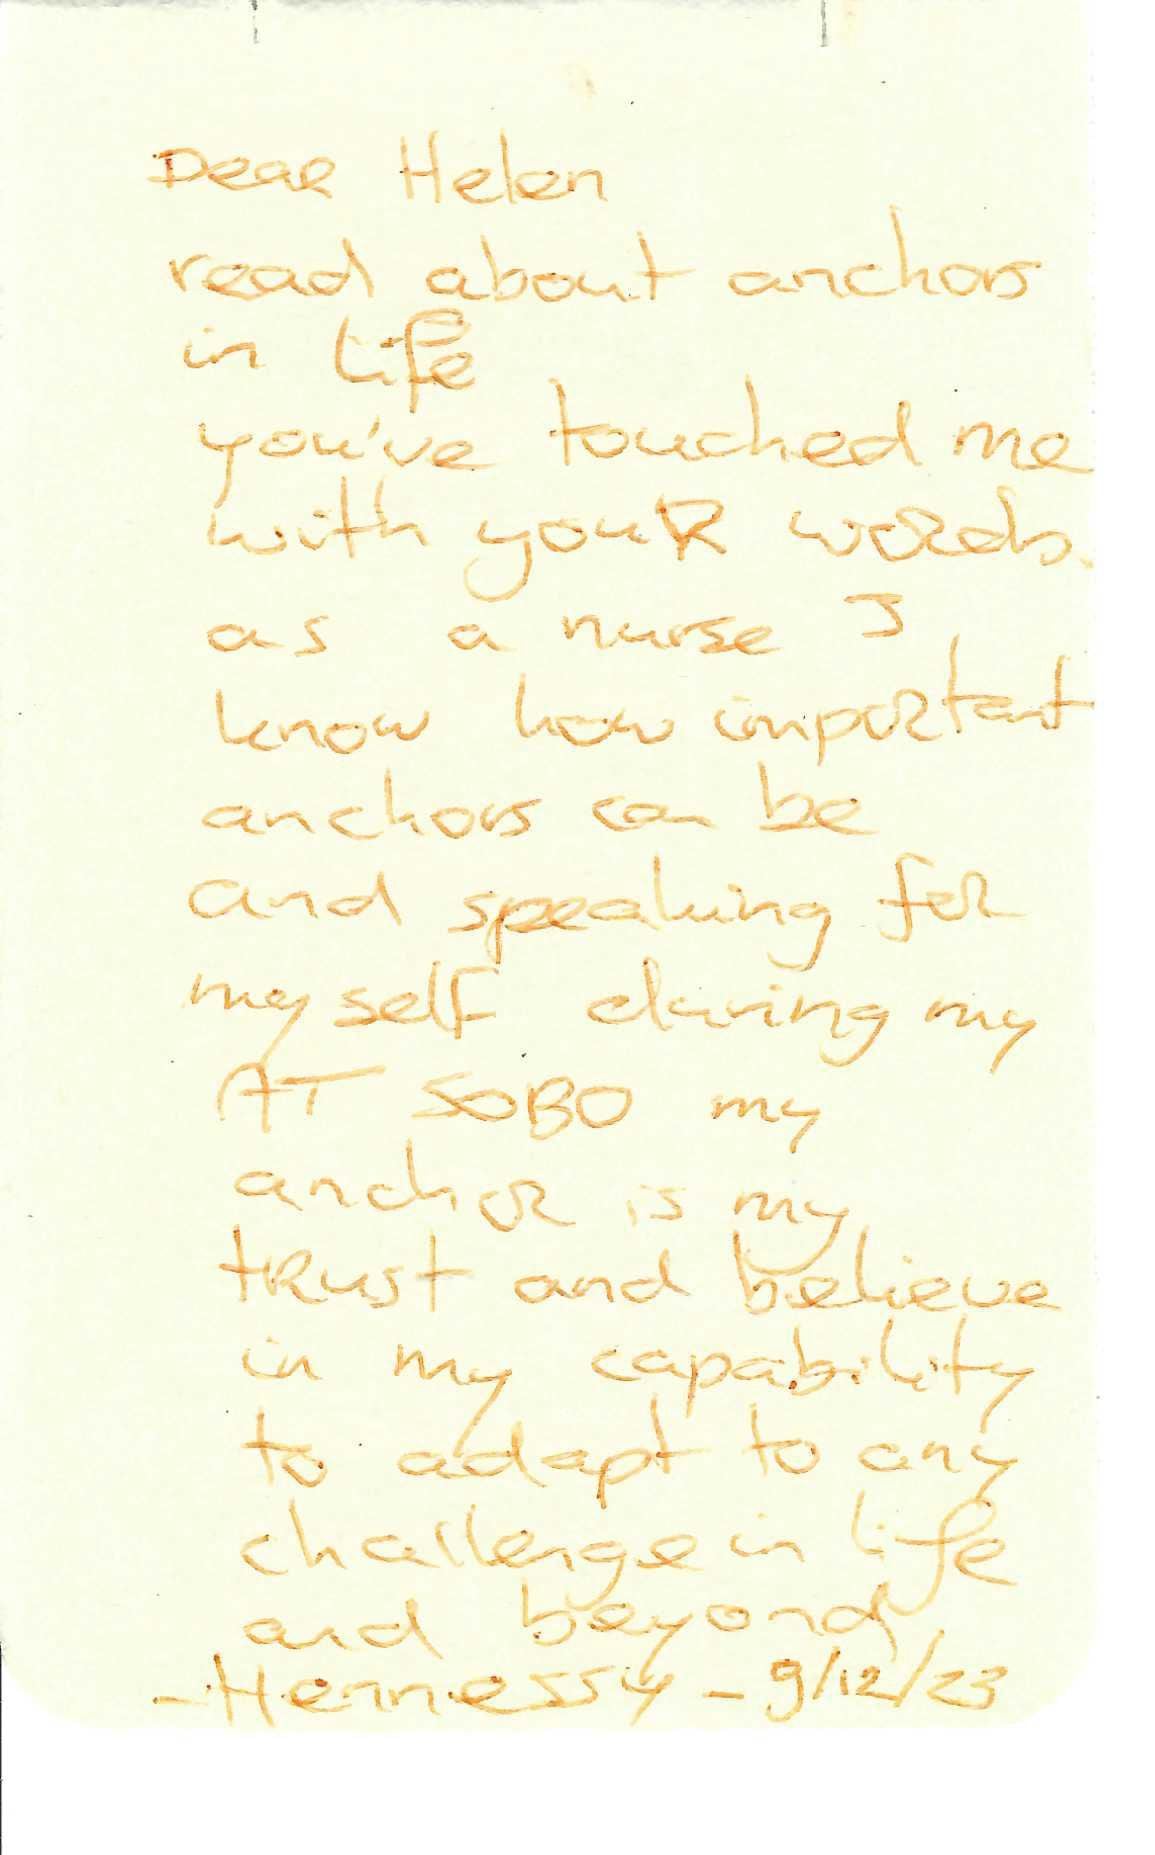 Dear Helen
read about anchors
in life
you've touched me
with youR woRds.
as a nurse I
know how impoRtant
anchors can be
and speaking foR
myself during my
AT SOBO my
anchoR is my
tRust and believe
in my capability
to adapt to any
challenge in life
and beyond
- Hennessy - 9/12/23